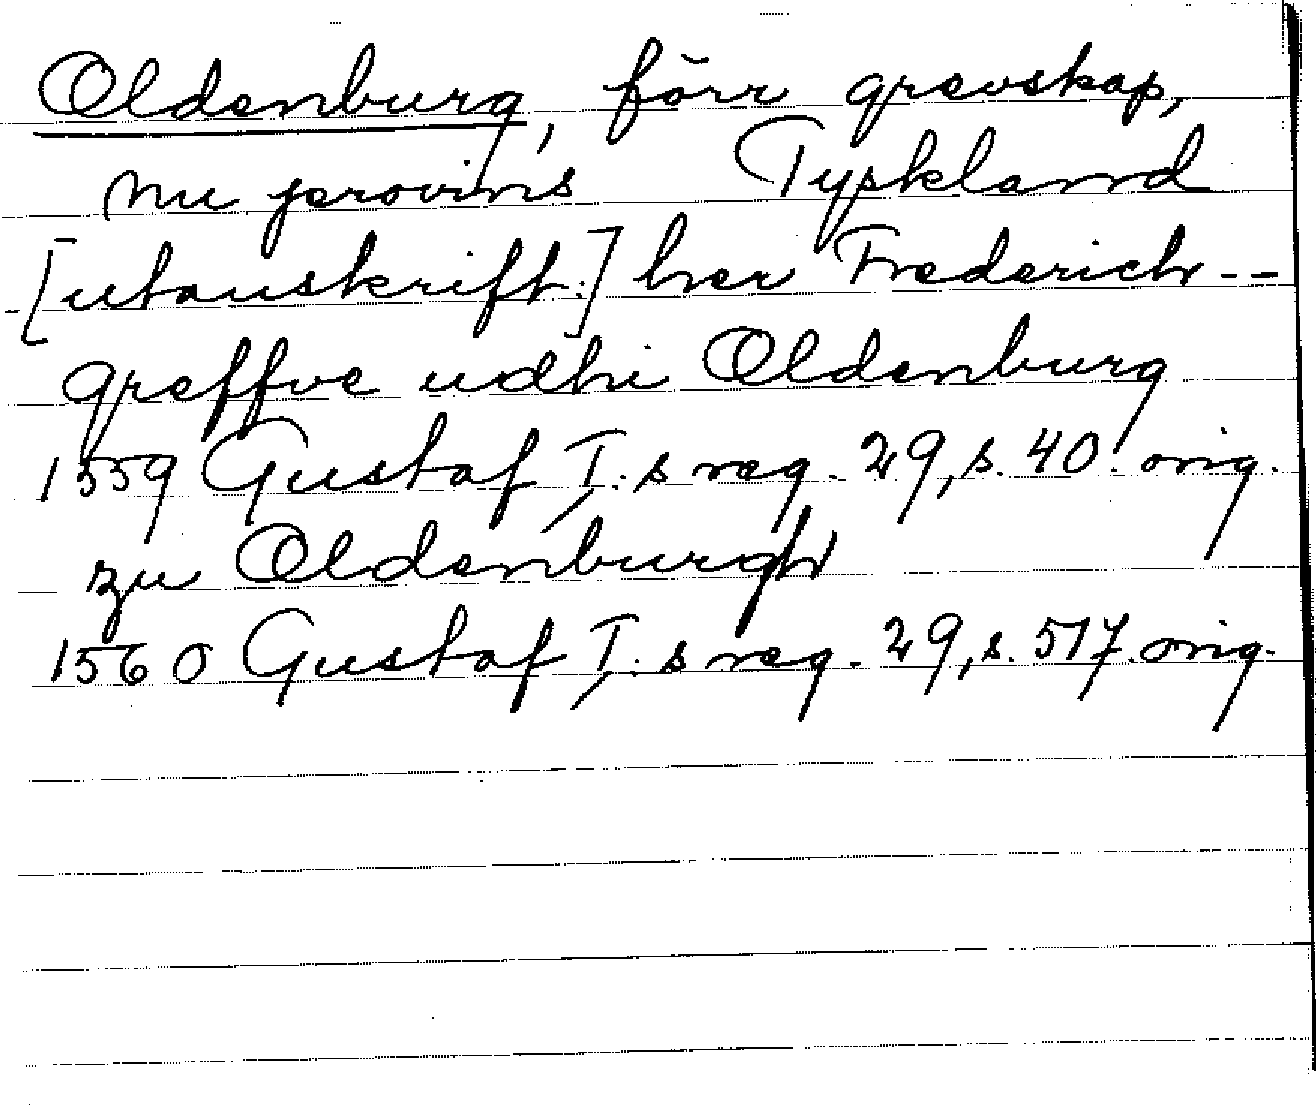 Oldenburg, förr grevskap,
nu provins Tyskland
[utanskrift:] her Frederich --
greffve udhi Oldenburg
1559 Gustaf I:s reg. 29, s. 40. orig.
zu Oldenburgh
1560 Gustaf I:s reg. 29, s. 517. orig.